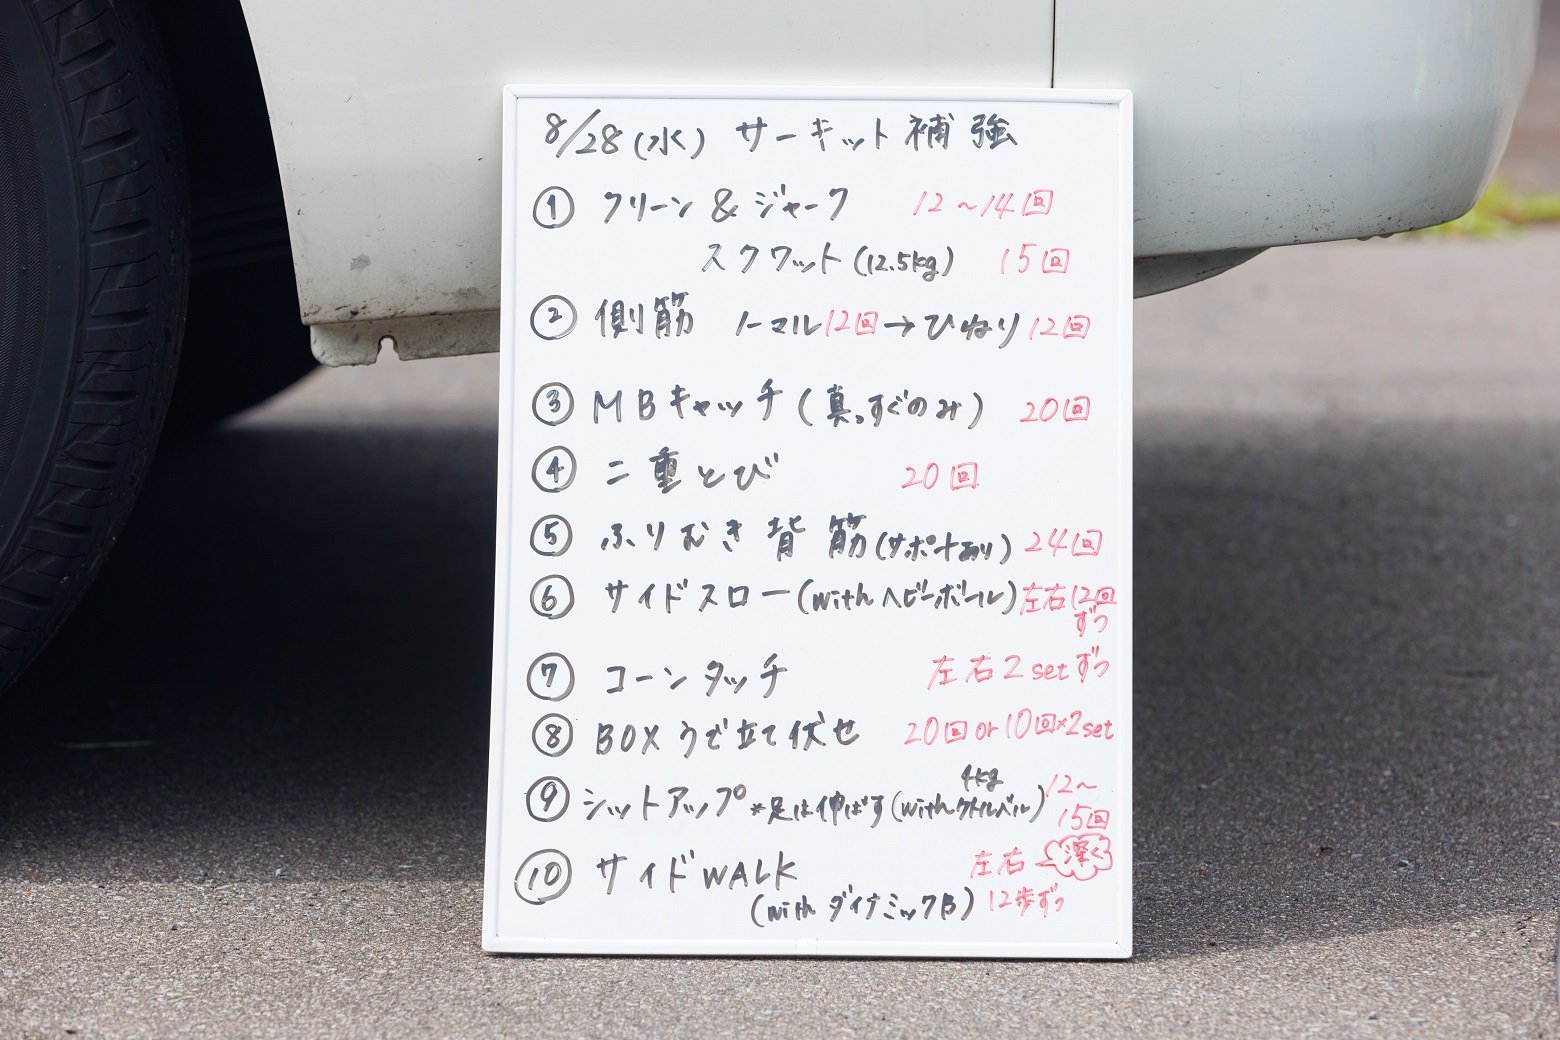 8/28(水) サーキット補強
① クリーン&ジャーク 12〜14回
スクワット(12.5kg) 15回
② 側筋 ノーマル12回→ひねり12回
③ MBキャッチ(真っすぐのみ) 20回
④ 二重とび 20回
⑤ ふりむき背筋(サポートあり) 24回
⑥ サイドスロー(withヘビーボール)左右12回
ずつ
⑦ コーンタッチ 左右2setずつ
⑧ BOXうで立て伏せ 20回or10回×2set
⑨ シットアップ*足は伸ばす(with4kgケトルベル) 12〜
15回
⑩ サイドWALK 左右 深く
(with ダイナミックB) 12歩ずつ